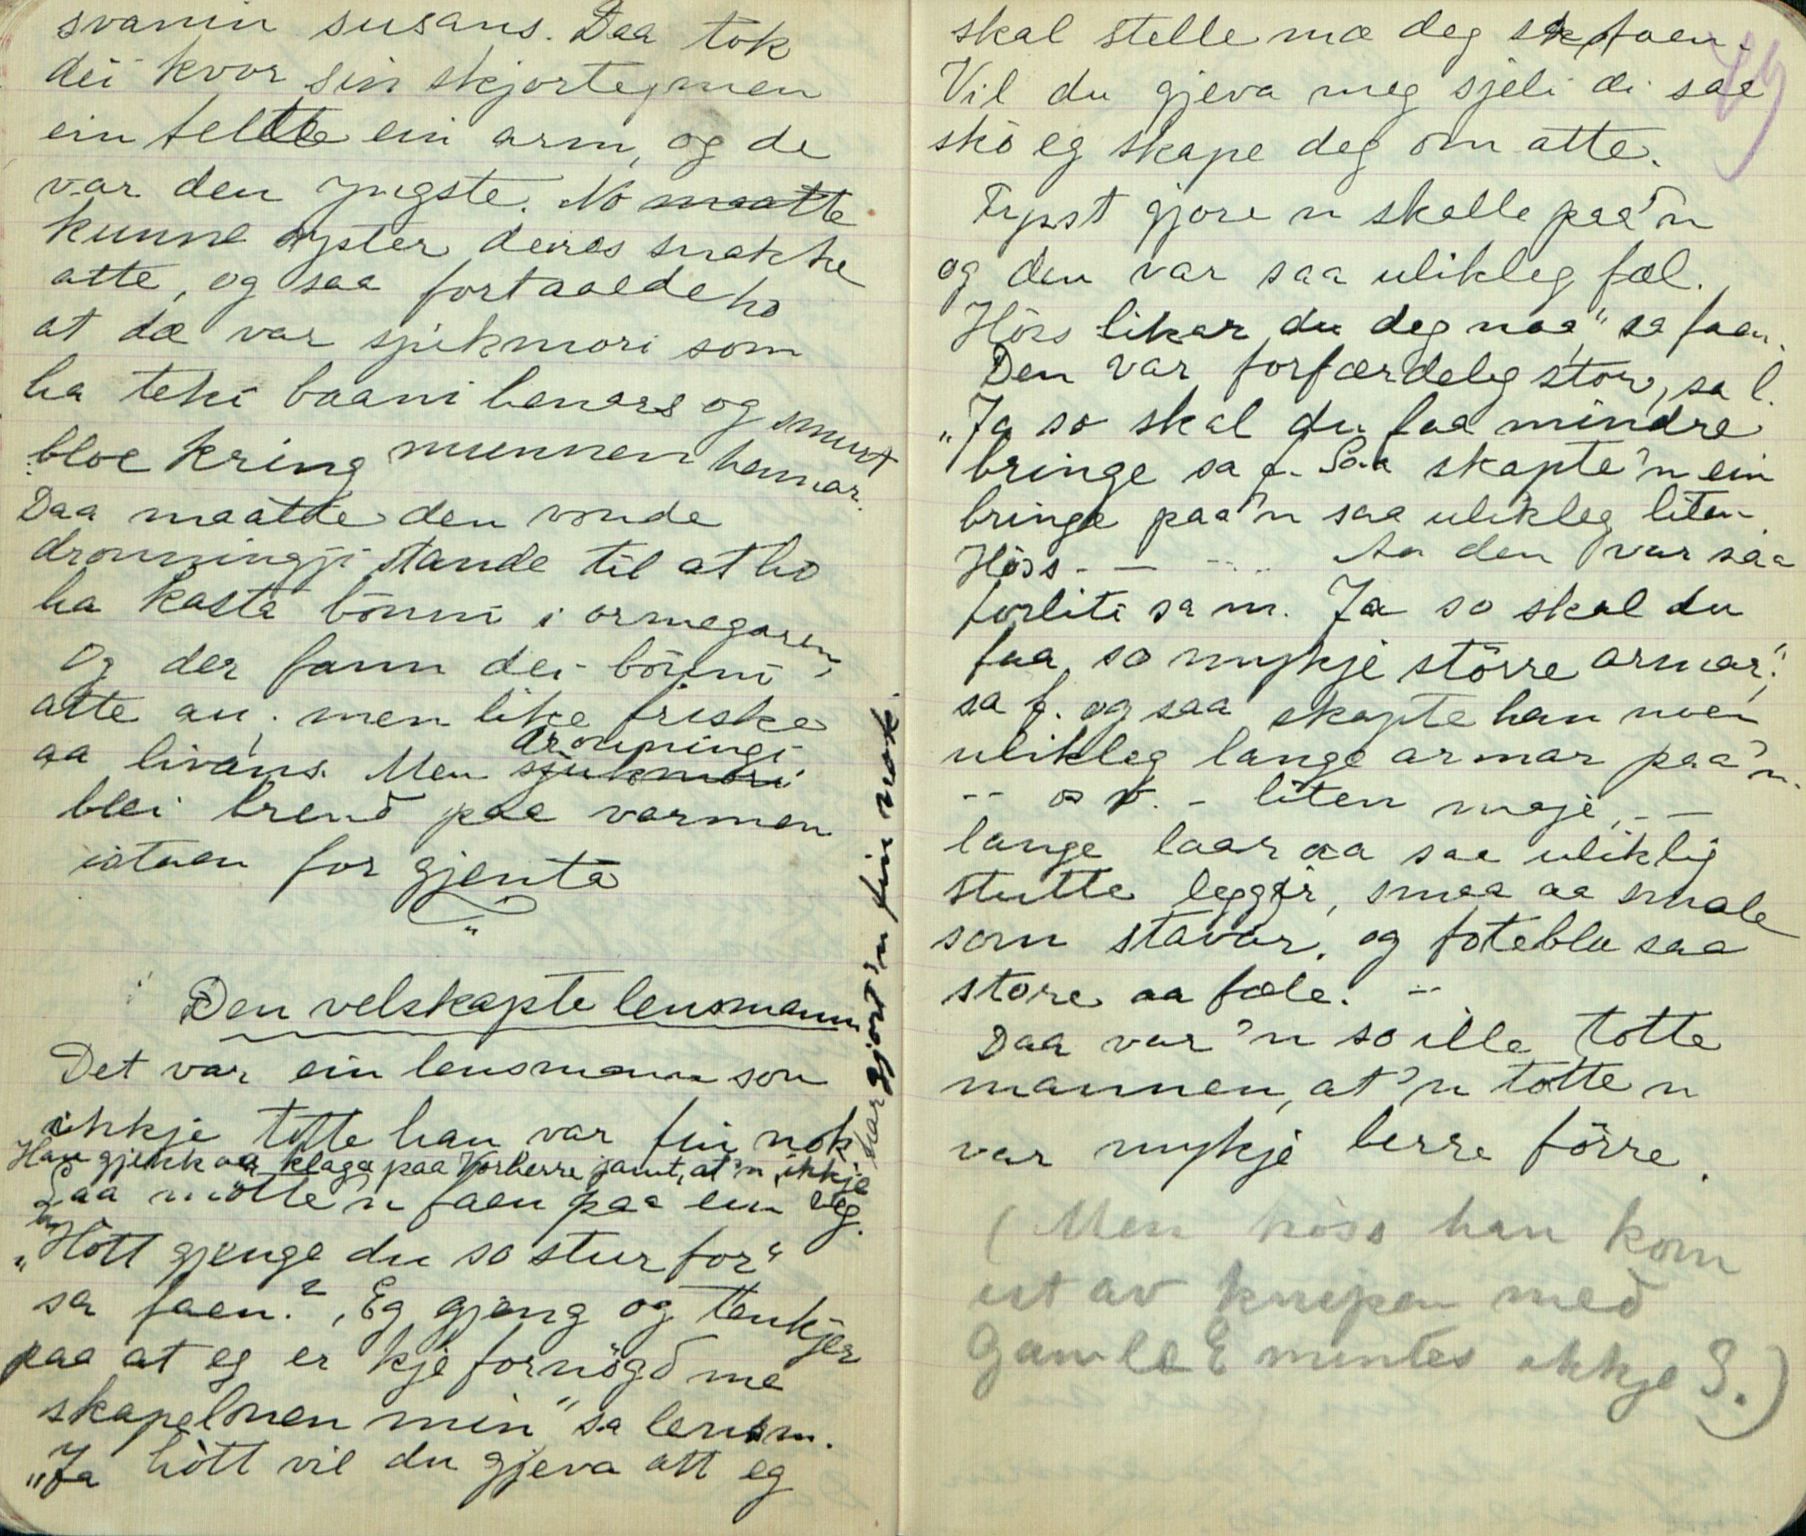 svanin susans. Daa tok
dei kvar sin skjorte, men
ein fellte ein arm, og de
var den yngste. No maatte
kunne syster deires snakke
atte, og saa fortaalde ho
at dæ var sjukmori som
ha teki baani henars og smurt
bloe kring munnen hennar.
Daa maatte den vonde
dronningji stande til at ho
ha kasta bönni i ormegaren,
Og der fann dei bönni
atte au, men like friske
aa livans. Men sjukmori dronningi
blei brend paa varmen
istaen for gjenta
Den velskapte lensmann
Det var ein lensmann som
ikkje totte han var fin nok
Han gjekk aa klaga paa Vorherre jamt, at'n ikkje
har gjort'n fin nok.
Saa mötte'n faen paa ein veg.
"Hött gjenge du so stur for"
sa faen? "Eg gjeng og tenkjer
paa at eg er kje fornögd me
skapelonen min" sa lensm.
"Ja hött vil du gjeva att eg
49
skal stelle mæ deg sa faen.
Vil du gjeva meg sjeli di saa
sko eg skape deg om atte.
Fyrst gjore n skalle paa'n
og den var saa ulikleg fæl.
Höss likar du deg naa," sa faen.
Den var forfærdeleg stor, sa l.
"Ja so skal du faa mindre
bringe sa f. Saa skapte'n ein
bringe paa'n saa ulikleg liten.
Höss - - - Aa den var saa
forliti sa m. Ja so skal du
faa so mykje större armar,"
sa f. og saa skapte han noen
ulikleg lange armar paa'n.
-- o s v. - liten maje, - -
lange laar aa saa uliklig
stutte leggir, smaa aa smale
som stavar, og foteblu saa
store aa fæle. --
Daa var'n so ille totte
mannen, at'n totte n
var mykje berre förre.
(Men höss han kom
ut av knipen med
Gamle E mintes ikkje S.)